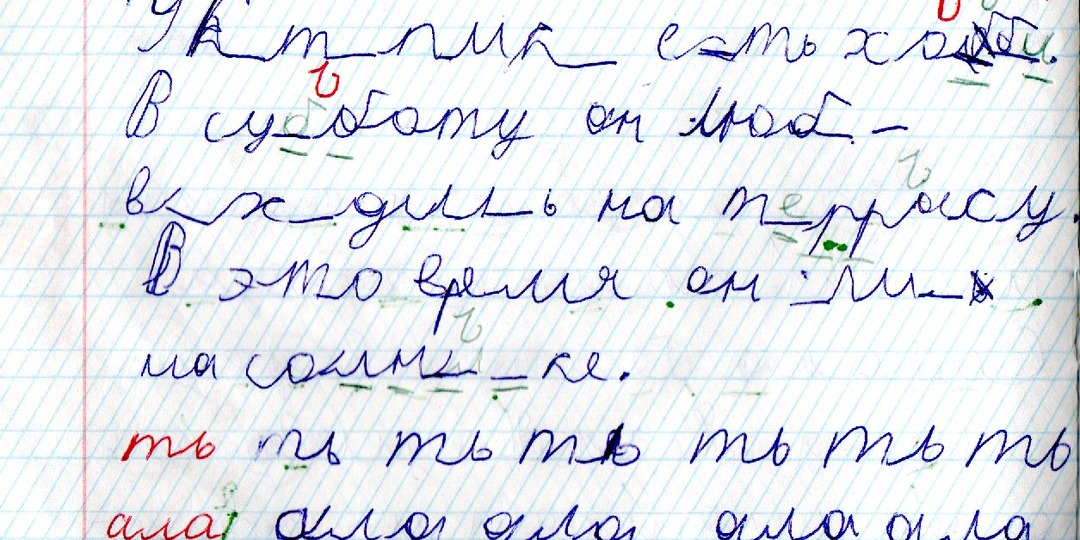 У к_т_пик_ есть хобби.
В субботу он люб_
в_х_дить на террасу.
В это время он
на солны_ке.
ть ть ть ть ть ть ть
ала ала ала ала ала